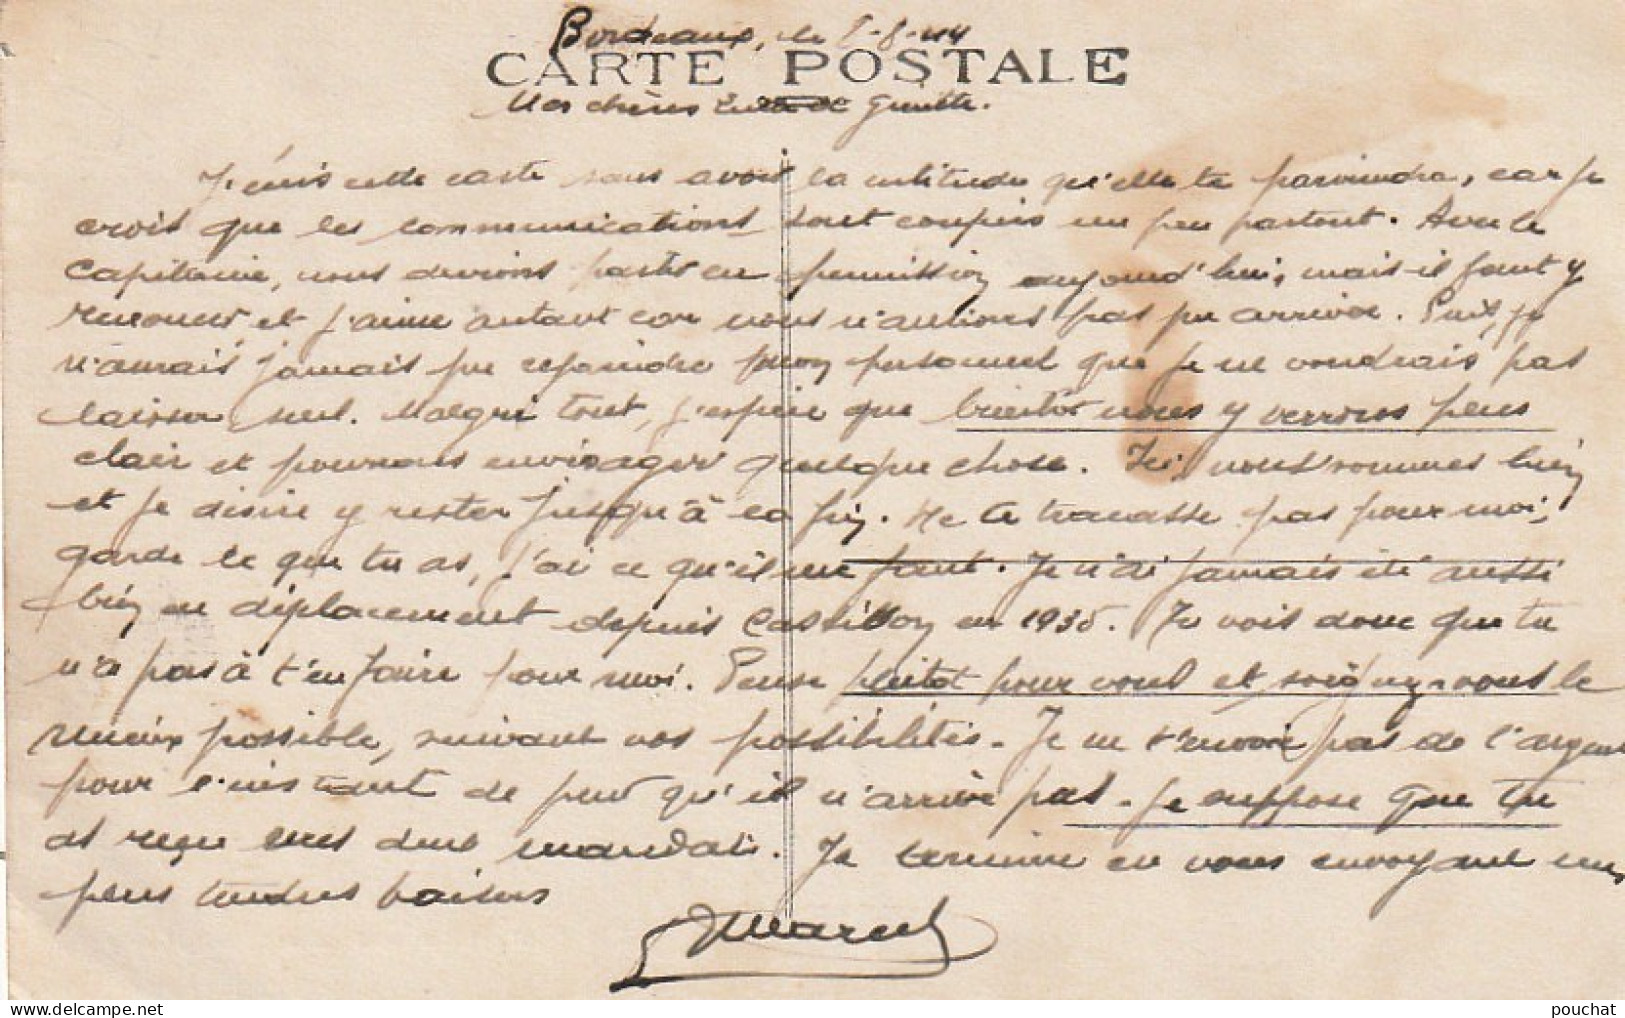 Bordeaux, le 8-8-44
CARTE POSTALE
Mes chères et Ginette.
J'écris cette carte sans avoir la certitude qu'elle te parviendra, car je
crois que les communications sont coupées un peu partout. Avec le
Capitaine, nous devions partir en permission aujourd'hui, mais il faut y
renoncer et j'aime autant car nous n'aurions pas pu arriver. Puis, je
n'aurais jamais pu rejoindre mon personnel que je ne voudrais pas
laisser seul. Malgré tout, j'espère que bientôt nous y verrons plus
clair et pourrons envisager quelque chose. Ici, nous sommes bien
et je désire y rester jusqu'à la fin. Ne te tracasse pas pour moi,
garde ce que tu as, j'ai ce qu'il me faut. Je n'ai jamais été aussi
bien en déplacement depuis Castillon en 1935. Tu vois donc que tu
n'as pas à t'en faire pour moi. Pense plutôt pour vous et soignez-vous le
mieux possible, suivant vos possibilités. Je ne t'envoie pas de l'argent
pour l'instant de peur qu'il n'arrive pas. Je suppose que tu
as reçu mes deux mandats. Je termine en vous envoyant mes
plus tendres baisers
Marcel
pouchat